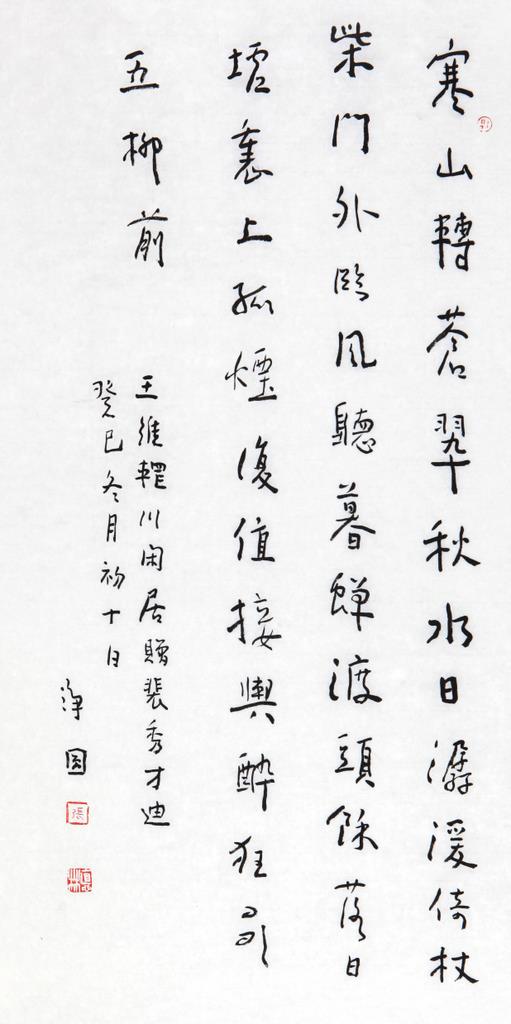 寒山轉蒼翠秋水日潺湲倚杖
柴門外臨風聽暮蟬渡頭餘落日
墟裏上孤煙復值接輿醉狂歌
五柳前
王維輞川閑居贈裴秀才迪
癸巳冬月初十日
淨圓
張